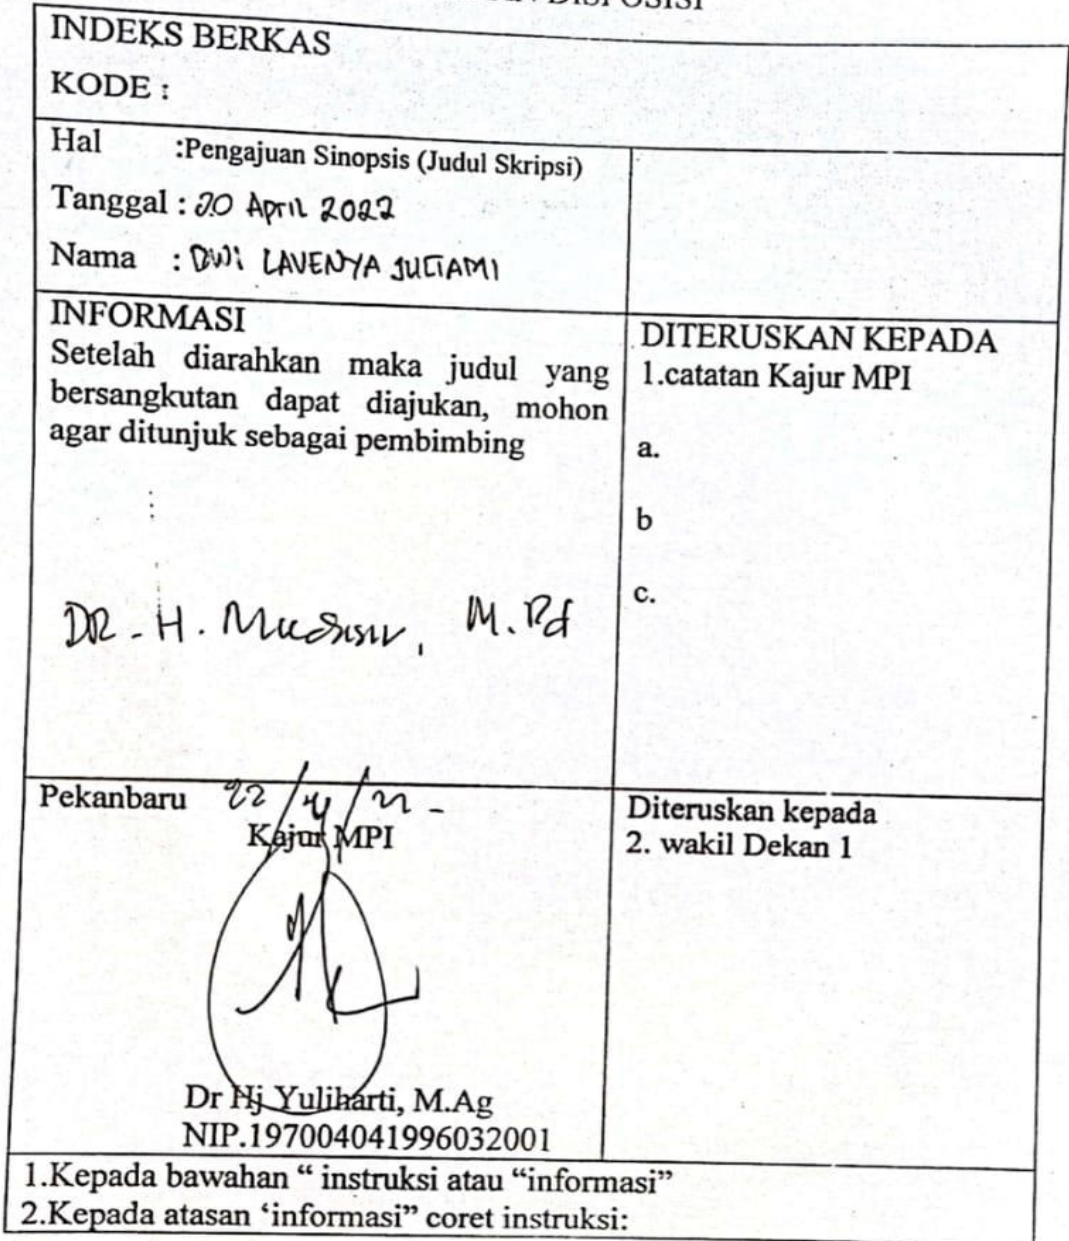 DISPOSISI
INDEKS BERKAS
KODE :
Hal :Pengajuan Sinopsis (Judul Skripsi)
Tanggal : 20 April 2022
Nama : DWI LAVENYA JULIAMI
INFORMASI
Setelah diarahkan maka judul yang
bersangkutan dapat diajukan, mohon
agar ditunjuk sebagai pembimbing
DR. H. Mudasir, M.Pd
DITERUSKAN KEPADA
1.catatan Kajur MPI
a.
b
c.
Pekanbaru 22/4/22
Kajur MPI
Dr Hj Yuliharti, M.Ag
NIP.197004041996032001
Diteruskan kepada
2. wakil Dekan 1
1.Kepada bawahan “ instruksi atau “informasi”
2.Kepada atasan ‘informasi” coret instruksi: